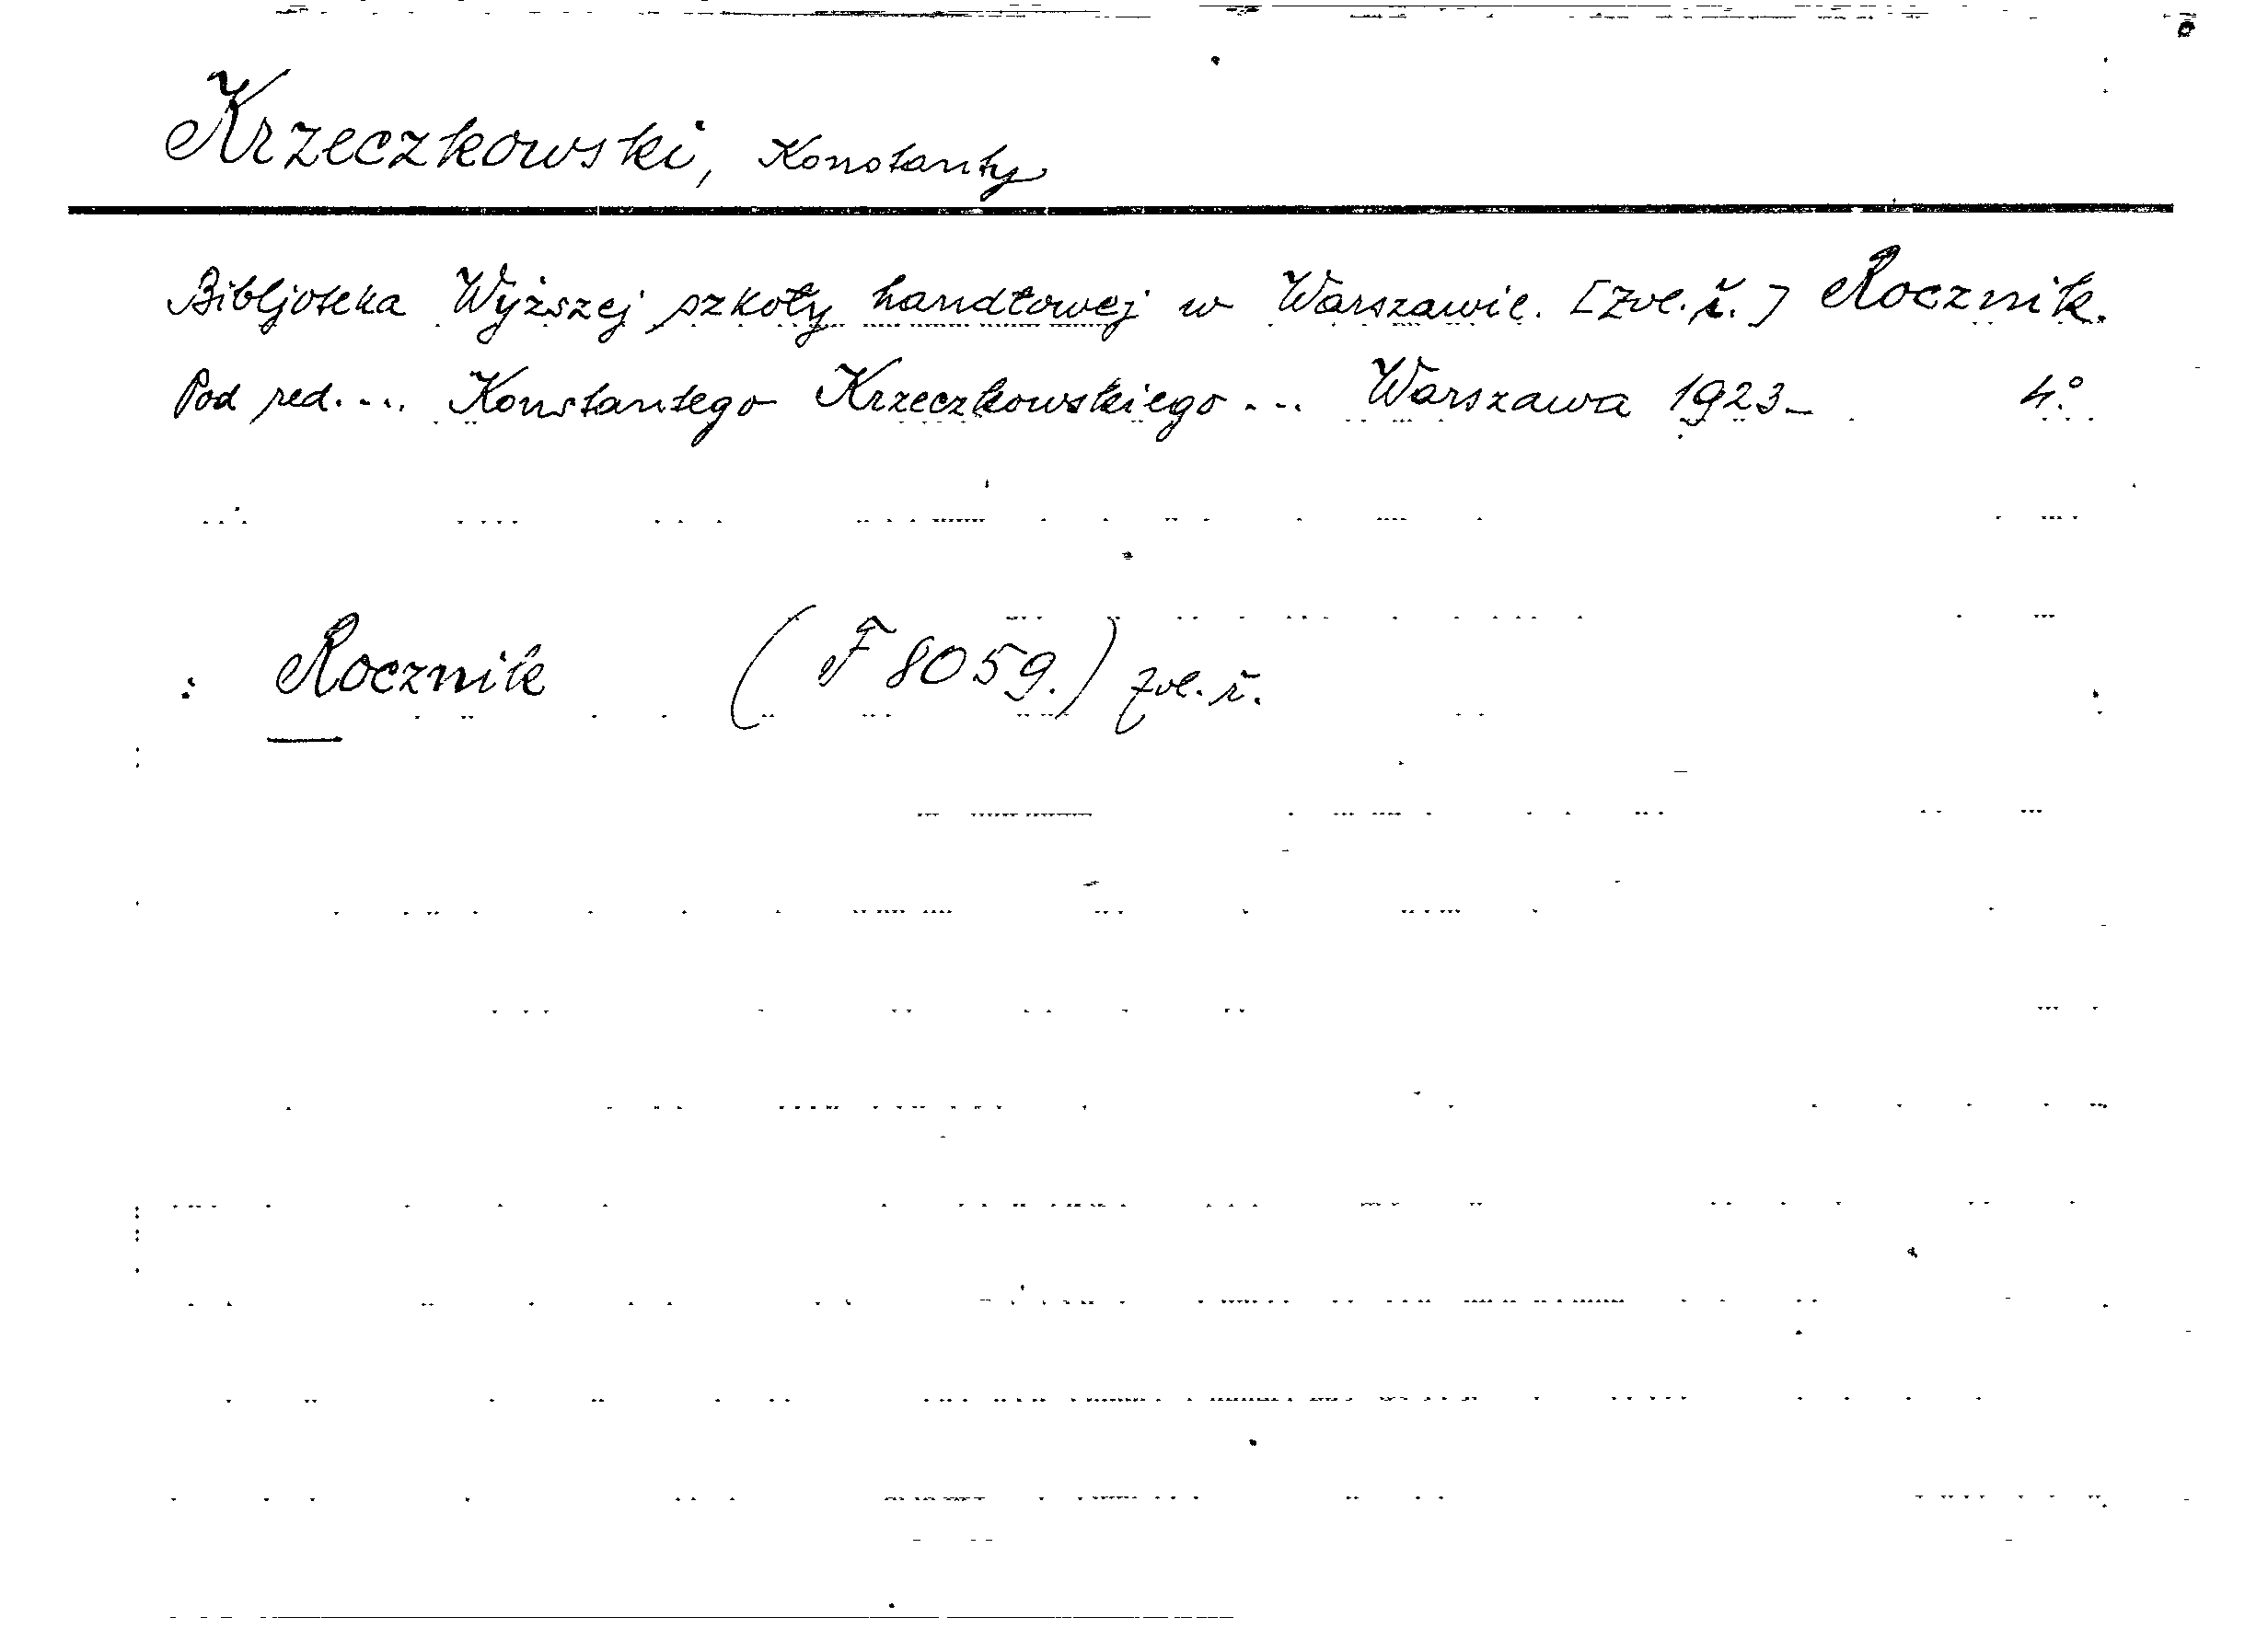 Krzeczkowski, Konstanty
Bibljoteka Wyższej szkoły handłowej w Warszawie. [Zvl. ř.] Rocznik.
Pod red. ... Konstantego Krzeczkowskiego ... Warszawa 1923– 4°.
: Rocznik (F 8059.) zvl. ř.